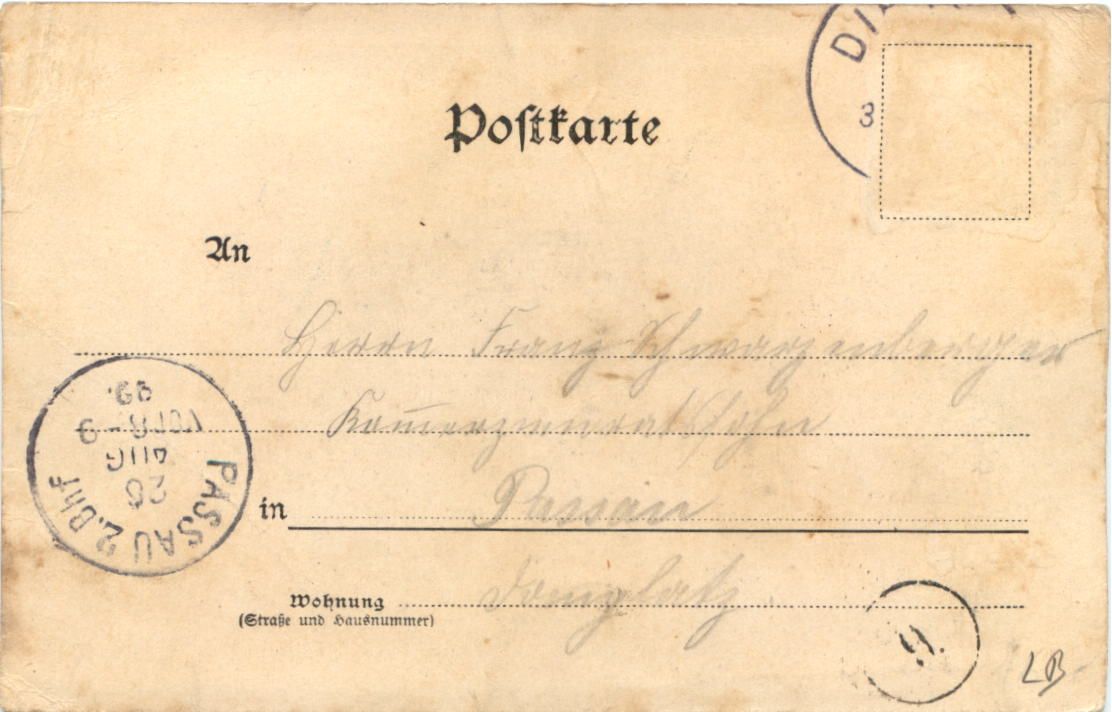 Postkarte
DI
3
An
Herrn Franz Schwarzenberger
Kommerzienratssohn
in Passau
Wohnung Domplatz.
(Straße und Hausnummer)
PASSAU 2. Bhf
26
AUG
VOR 8-9
99.
9.
LB